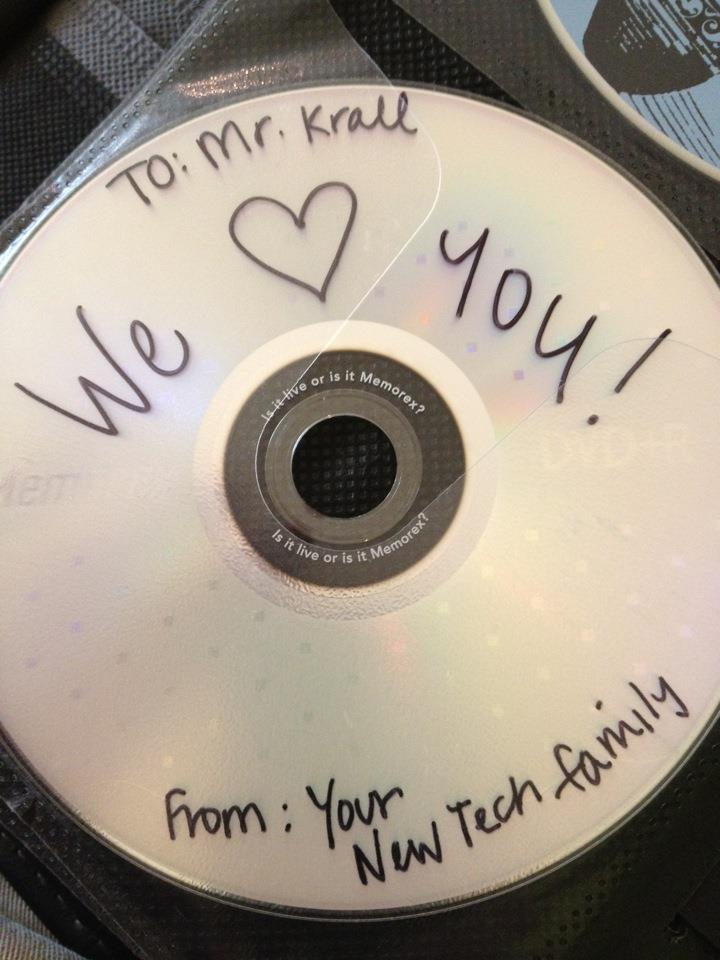 To: Mr. Krall
We ♡ you!
Is it live or is it Memorex?
DVD+R
Is it live or is it Memorex?
From: Your
New Tech family